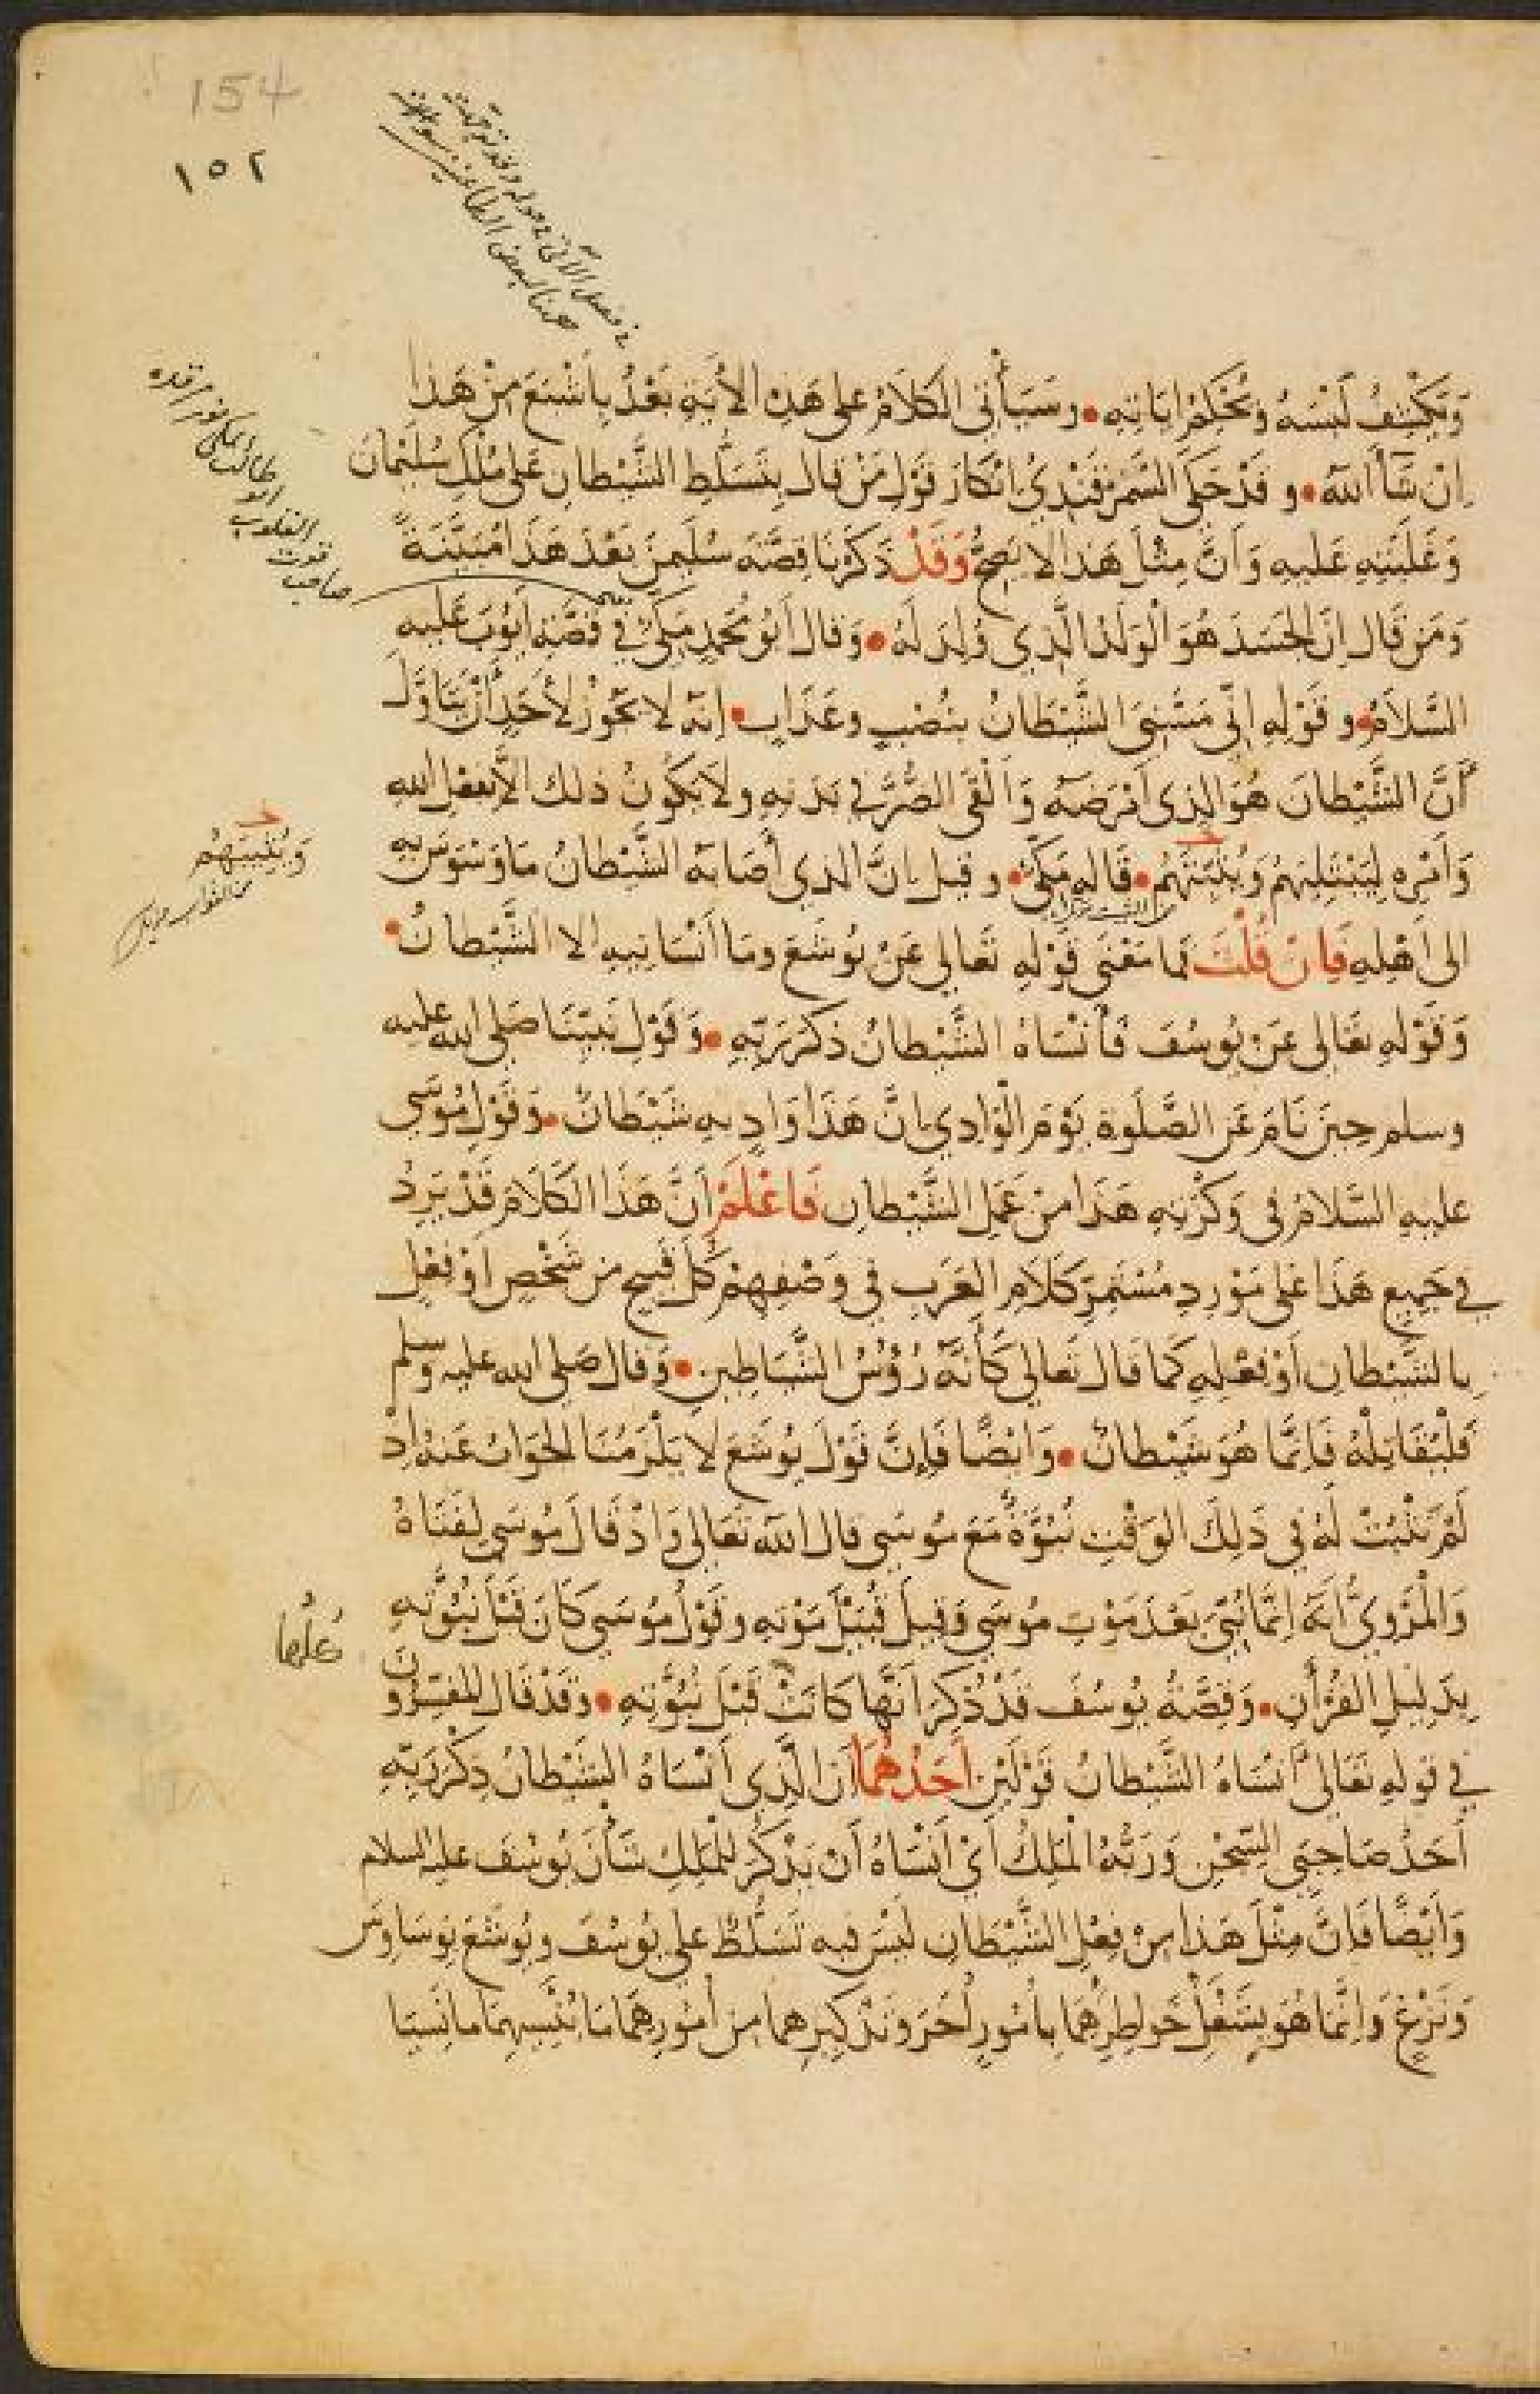 154
١٥٢
وَيَكْشِفُ لَبْسَهُ وَيُحْكِمُ ايَاتِهِ • وسَيَأْتِي الكَلَامُ على هَذِهِ الآيَةِ بَعْدُ بِاَشْبَعَ مِنْ هَذا
اِنْ شَآءَ اللَّه • و قَدْ حَكَى السَّمَرْقَنْدِيُّ اِنْكَارَ قَوْلِ مَنْ قال بِتَسَلُّطِ الشَّيْطانِ عَلى مُلْكِ سُلَيْمَانَ
وَغَلَبَتِهِ عَليهِ وَاَنَّ مِثْلَ هَذا لا يَصِحُّ وَقَدْ ذَكَرْنَا قِصَّةَ سُلَيمنَ بَعْدَ هَذَا مُبَيَّنَةً
وَمَن قَالَ اِنَّ الجَسَدَ هُوَ الْوَلَدُ الَّذِي وُلِدَ لَهُ • وَقال أَبُو مُحَمَّدٍ مَكِّيٌّ في قِصَّةِ أَيُّوبَ عَلَيهِ
السَّلَامُ • و قَوْلِهِ اِنِّي مَسَّنِيَ الشَّيْطَانُ بِنُصْبٍ وعَذَابٍ • اِنَّه لا يَجُوزُ لأَحَدٍ أَنْ يَتَأَوَّلَ
أَنَّ الشَّيْطانَ هُوَ الذِى اَمْرَضَهُ وَاَلْقَى الضُّرَّ في بَدَنِهِ ولاَ يَكُونُ ذلك الاَّ بفعْلِ الله
وَاَمْرِه لِيَبْتَلِيَهُمْ وَيُثَبِّتَهُم • قَاله مَكِّيٌّ • و قيل اِنَّ الذي أَصَابَهُ الشَّيْطانُ مَا وَسْوَسَ بِهِ
وَيُثِيبَهُمْ
الى اَهْلِهِ فَاِنْ قُلْتَ فَما مَعْنَى قَوْلِهِ تَعَالى عَنْ يُوشَعَ ومَا اَنْسَانِيهِ الا الشَّيْطانُ •
وَقَوْلِهِ تعَالى عَنْ يُوسُفَ فَأَنْسَاهُ الشَّيْطانُ ذِكْرَ رَبِّهِ • وَقَوْلِ نَبِيِّنَا صَلى الله عليه
وسلم حِينَ نَامَ عَنِ الصَّلَوةِ يَوْمَ الْوَادِي اِنَّ هَذَا وَادٍ بِهِ شَيْطَانٌ • وَقَوْلِ مُوسَى
عليهِ السَّلامُ فى وَكْزَتِهِ هَذَا مِنْ عَمَلِ الشَّيْطانِ فَاعْلَمْ اَنَّ هَذَا الكَلَامَ قَدْ يَرِدُ
في جَمِيعِ هَذَا عَلى مَوْرِدِ مُسْتَمِرِّ كَلَامِ العَرَبِ فى وَصْفِهِمْ كُلَّ قَبيحٍ مِن شَخْصٍ اَوْ فِعْلٍ
بِالشَّيْطانِ أَوْ فِعْلِهِ كَما قال تَعالى كَأَنَّهُ رُؤُسُ الشَّيَاطِينِ • وَقال صَلى الله عليه وسلم
فَلْيُقَاتِلْهُ فَاِنَّمَا هُوَ شَيْطانٌ • وَايْضًا فَإِنَّ قَوْلَ يُوشَعَ لاَ يَلْزَمُنَا الجَوَابُ عَنهُ اِذْ
لَمْ يَثْبُتْ لَهُ فِي ذَلِكَ الوَقْتِ نُبُوَّةٌ مَعَ مُوسَى قال الله تَعَالى وَاِذْ قَالَ مُوسَى لِفَتَاهُ
وَالْمَرْوِيُّ اَنَّه اِنَّمَا نُبِّئَ بَعْدَ مَوْتِ مُوسَى وَقِيلَ قُبَيْلَ مَوْتِهِ وَقَوْلُ مُوسَى كَانَ قَبْلَ نُبُوَّتِهِ
بِدَليلِ القُرْأَنِ • وَقِصَّةُ يُوسُفَ قَدْ ذُكِرَ اَنَّهَا كَانَتْ قَبْلَ نُبُوَّتِهِ • وَقَدْ قَال المفسِّرُونَ
في قَولِه تَعَالى أَنْسَاهُ الشَّيْطانُ قَوْلَيْنِ أَحَدُهُمَا اَنَّ الَّذِى أَنْسَاهُ الشَّيْطَانُ ذِكْرَ رَبِّهِ
أَحَدُ صَاحِبَيِ السِّجْنِ وَرَبُّهُ الْمَلِكُ أَيْ اَنْسَاهُ أَن يَذْكُرَ لِلْمَلِكِ شَأْنَ يُوسُفَ عليه السلام
وَاَيْضًا فَاِنَّ مِثْلَ هَذا مِنْ فِعْلِ الشَّيْطَانِ لَيْسَ فيه تَسَلُّطٌ على يُوسُفَ ويُوشَعَ بِوَسَاوِسَ
وَنَزْغٍ وَاِنَّمَا هُوَ بِشَغْلِ خَواطِرِهُمَا بِاُمُورٍ اُخَرَ وَتَذْكِيرِهما مِن أُمُورِهِمَا مَا يُنَسِّيهِمَا ما نَسِيَا